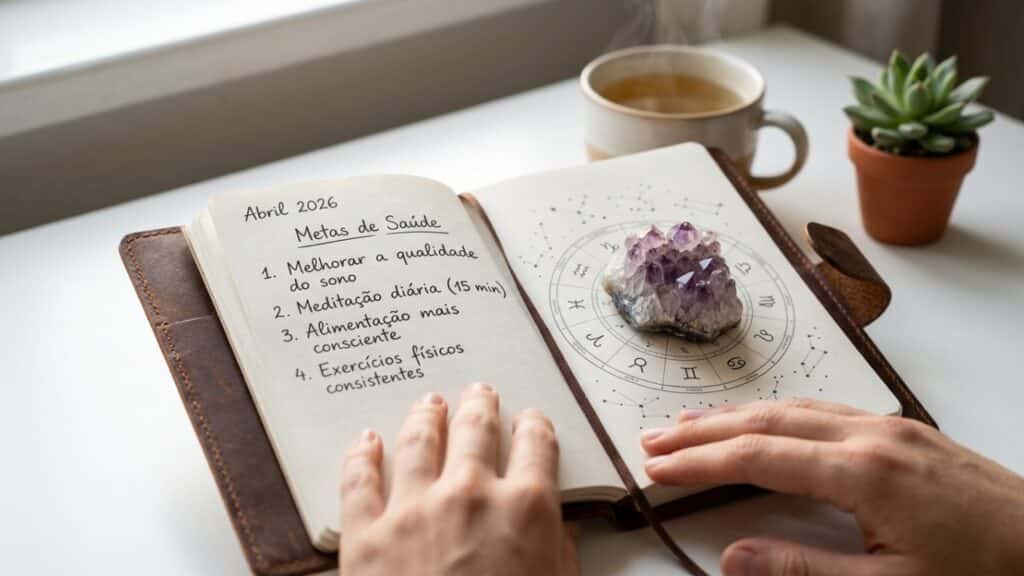 Abril 2026
Metas de Saúde
1. Melhorar a qualidade
do sono
2. Meditação diária (15 min)
3. Alimentação mais
consciente
4. Exercícios físicos
consistentes